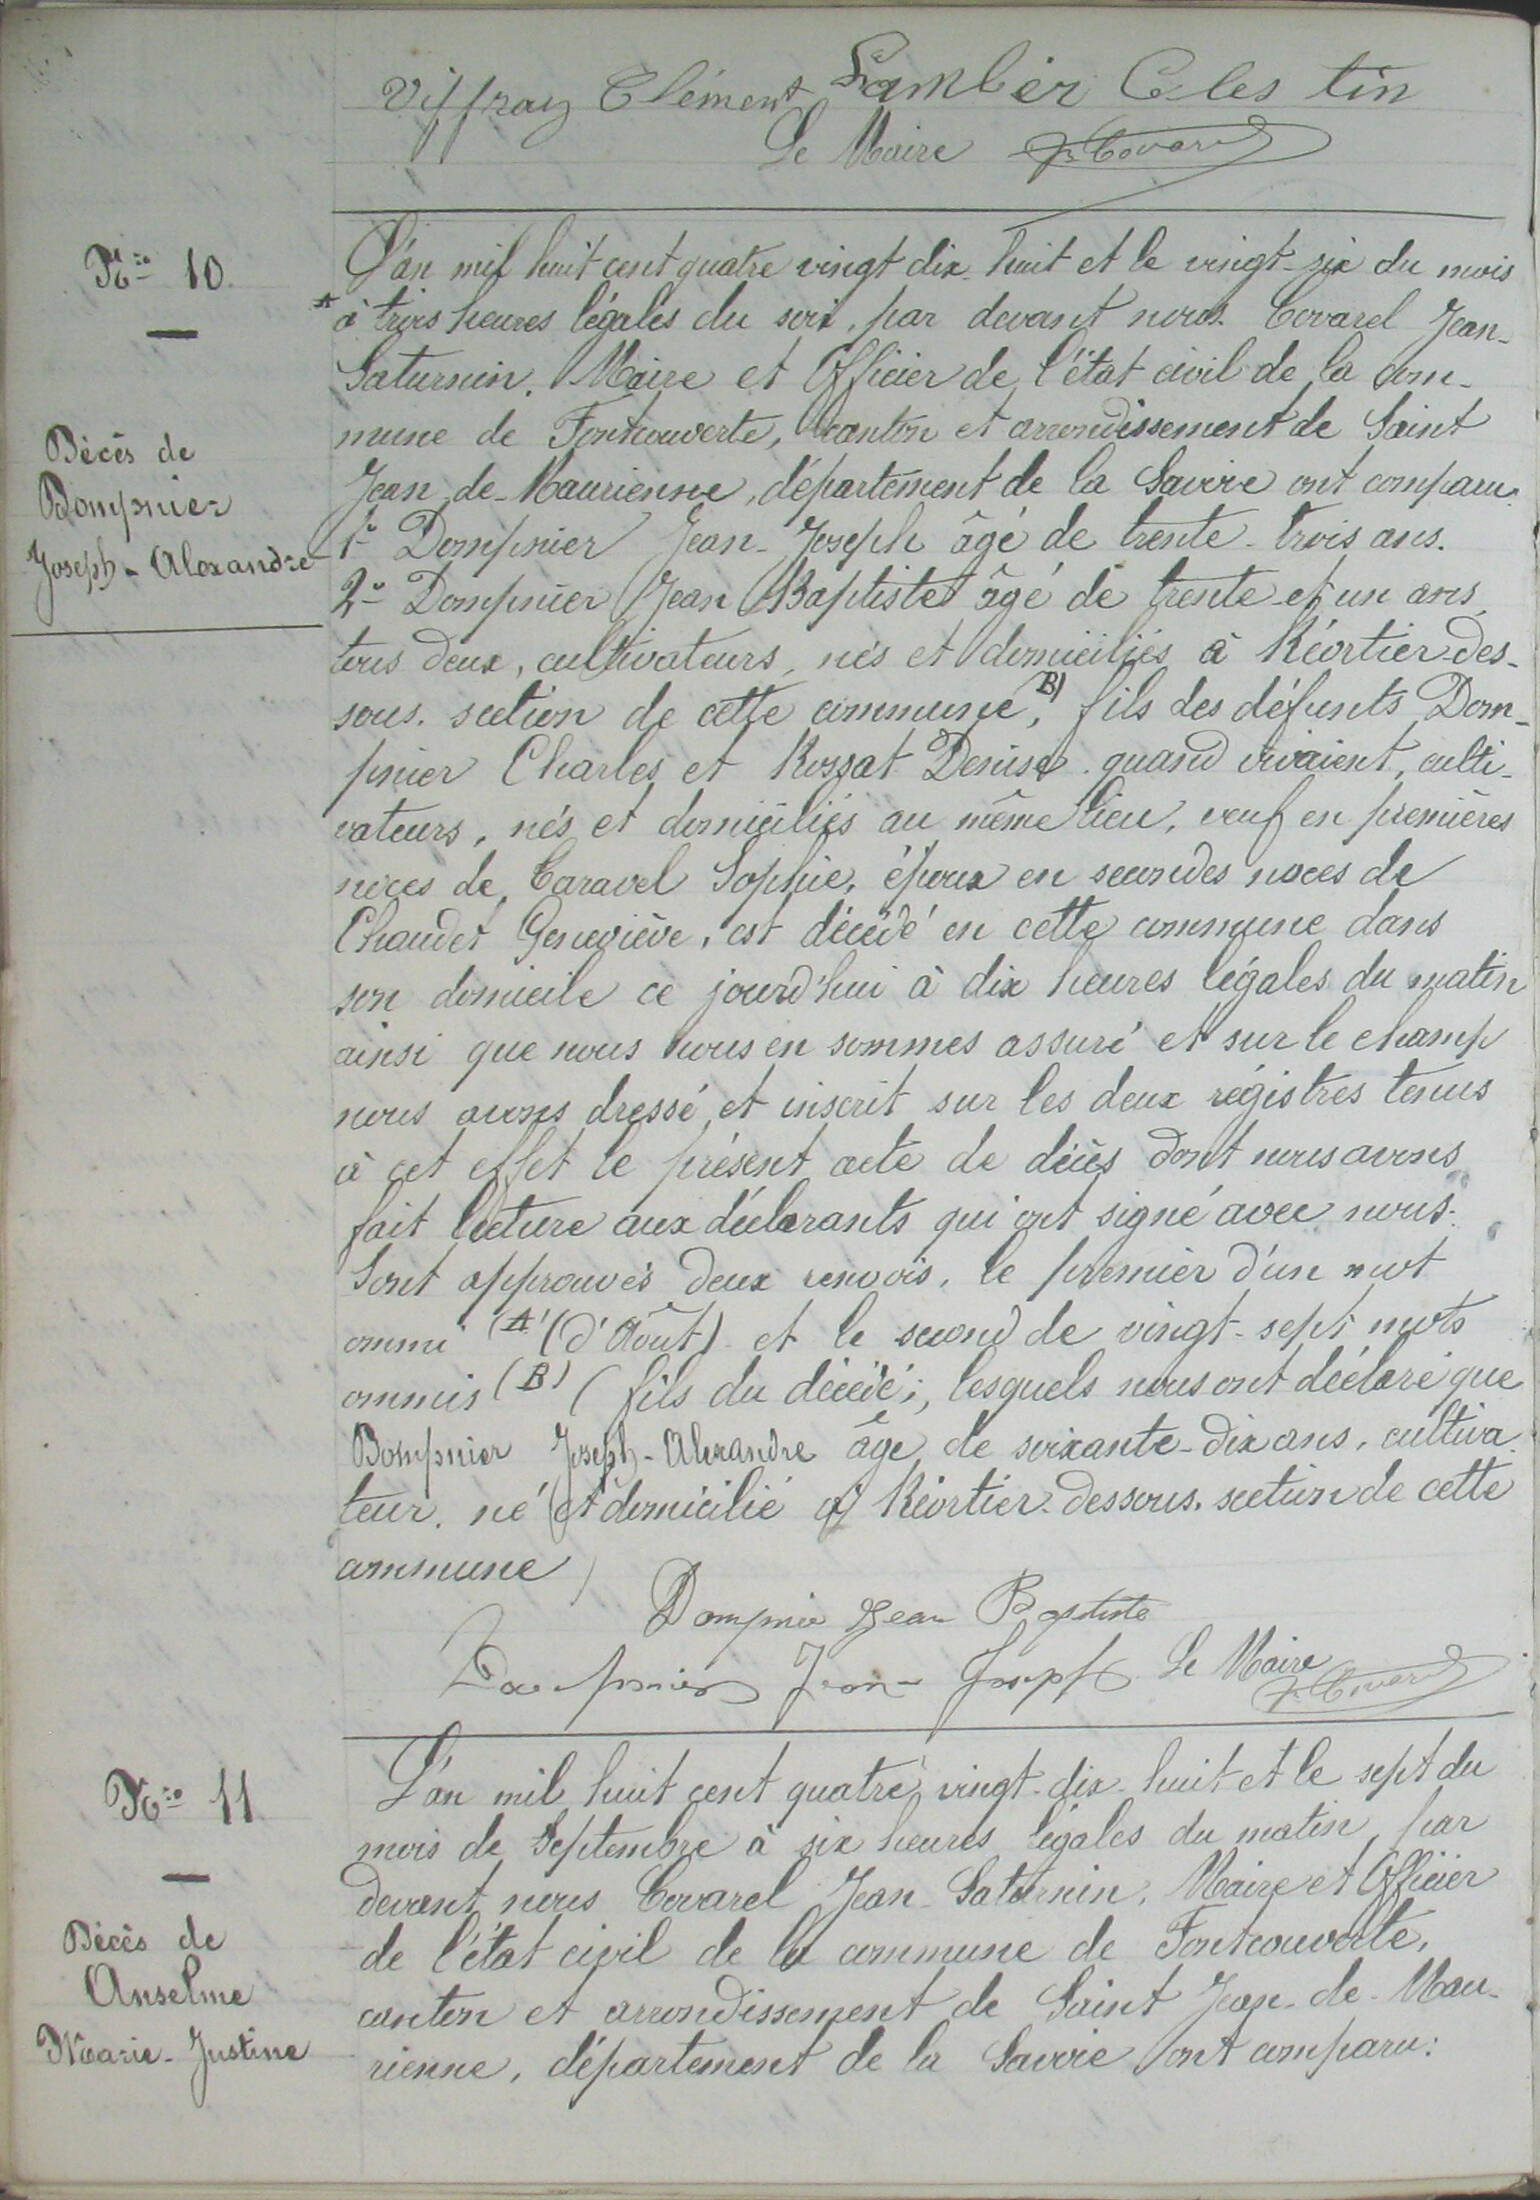 Viffray Clément Lambèr Celes tin
Le Maire Js Covarel
Nro 10.
Décès de
Dompnier
Joseph-Alexandre
L'an mil huit cent quatre vingt dix-huit et le vingt-six du mois
A à trois heures légales du soir, par devant nous. Covarel Jean-
Saturnin, Maire et Officier de l'état civil de la com-
mune de Fontcouverte, canton et arrondissement de Saint
Jean-de-Maurienne, département de la Savoie ont comparu.
1º Dompnier Jean-Joseph âgé de trente-trois ans.
2º Dompnier Jean Baptiste âgé de trente-et un ans
tous deux, cultivateurs, nés et domiciliés à Réortier-des-
sous. section de cette commune, B) fils des défunts Dom-
pnier Charles et Rossat Denise. quand vivaient, culti-
vateurs, nés et domiciliés au même lieu, veuf en premières
noces de Caravel Sophie, époux en secondes noces de
Chaudet Geneviève, est décédé en cette commune dans
son domicile ce jourd'hui à dix heures légales du matin
ainsi que nous nous en sommes assuré et sur le champ
nous avons dressé et inscrit sur les deux régistres tenus
à cet effet le présent acte de décès dont nous avons
fait lecture aux déclarants qui ont signé avec nous.
Sont approuvés deux renvois, le premier d'un mot
ommi (A) (d'Août) et le second de vingt-sept mots
ommis (B) (fils du décédé; lesquels nous ont déclaré que
Dompnier Joseph-Alexandre âge de soixante-dix ans, cultiva
teur, né et domicilié à Réortier-dessous. section de cette
commune)
Dompnie Jean Baptiste
Dompnier Jean Josepf Le Maire
Js Covarel
Nro 11
Décès de
Anselme
Marie-Justine
L'an mil huit cent quatre vingt-dix-huit et le sept du
mois de Septembre à six heures légales du matin, par
devant nous Covarel Jean-Saturnin, Maire et Officier
de l'état civil de la commune de Fontcouverte,
canton et arrondissement de Saint Jean-de-Mau-
rienne, département de la Savoie ont comparu: